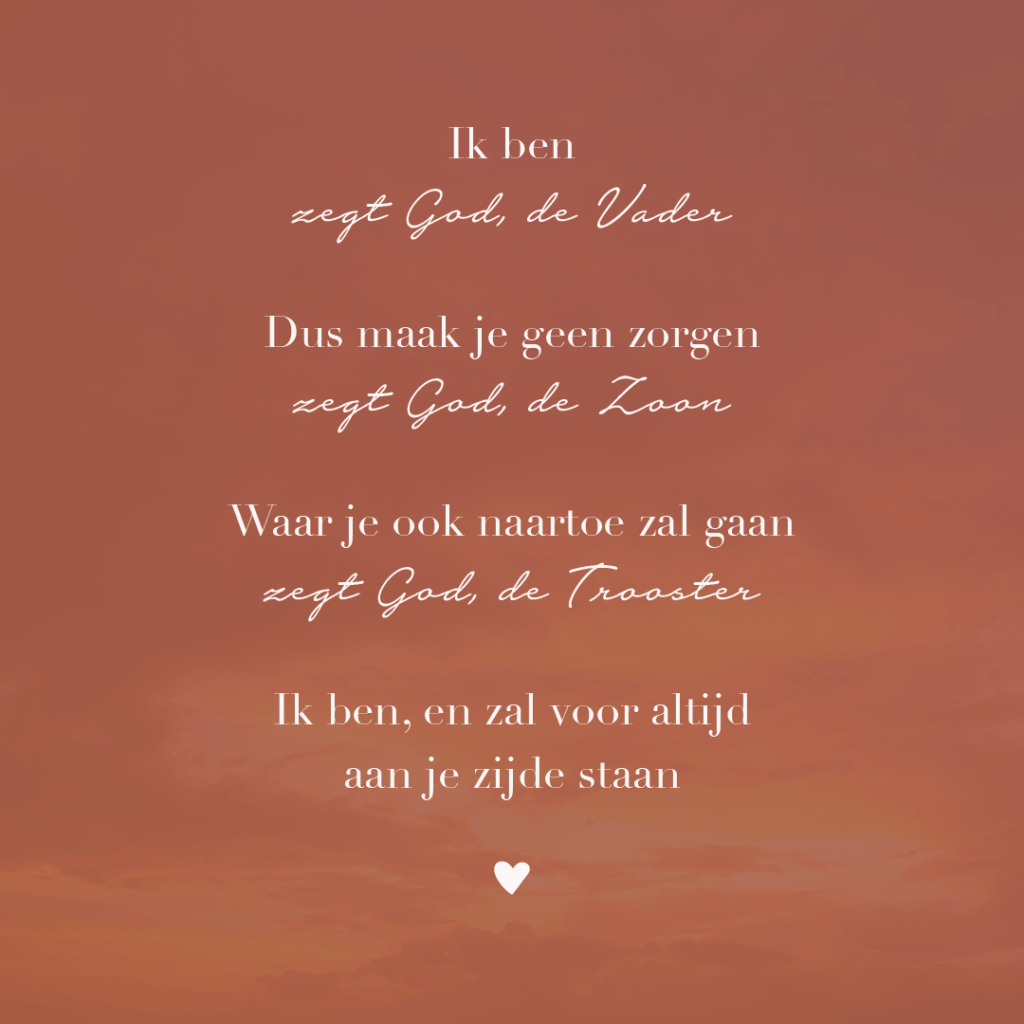 Ik ben
zegt God, de Vader
Dus maak je geen zorgen
zegt God, de Zoon
Waar je ook naartoe zal gaan
zegt God, de Trooster
Ik ben, en zal voor altijd
aan je zijde staan